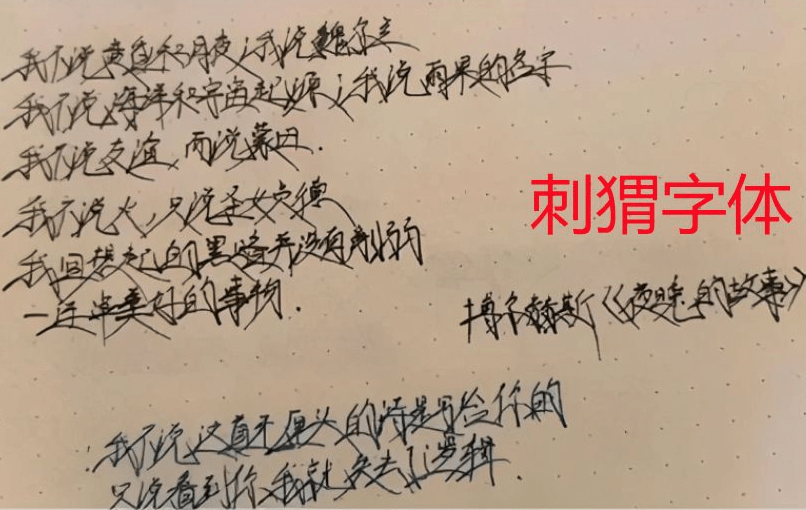 我不说黄昏和月夜;我说魏尔兰
我不说海洋和宇宙起源;我说雨果的名字
我不说友谊,而说蒙田.
我不说火,只说圣女贞德
刺猬字体
我回想起的黑暗并没有削弱
一连串美好的事物.
博尔赫斯《夜晚的故事》
我不说,这首不原头的诗是写给你的
只说看到你,我就失去了逻辑.